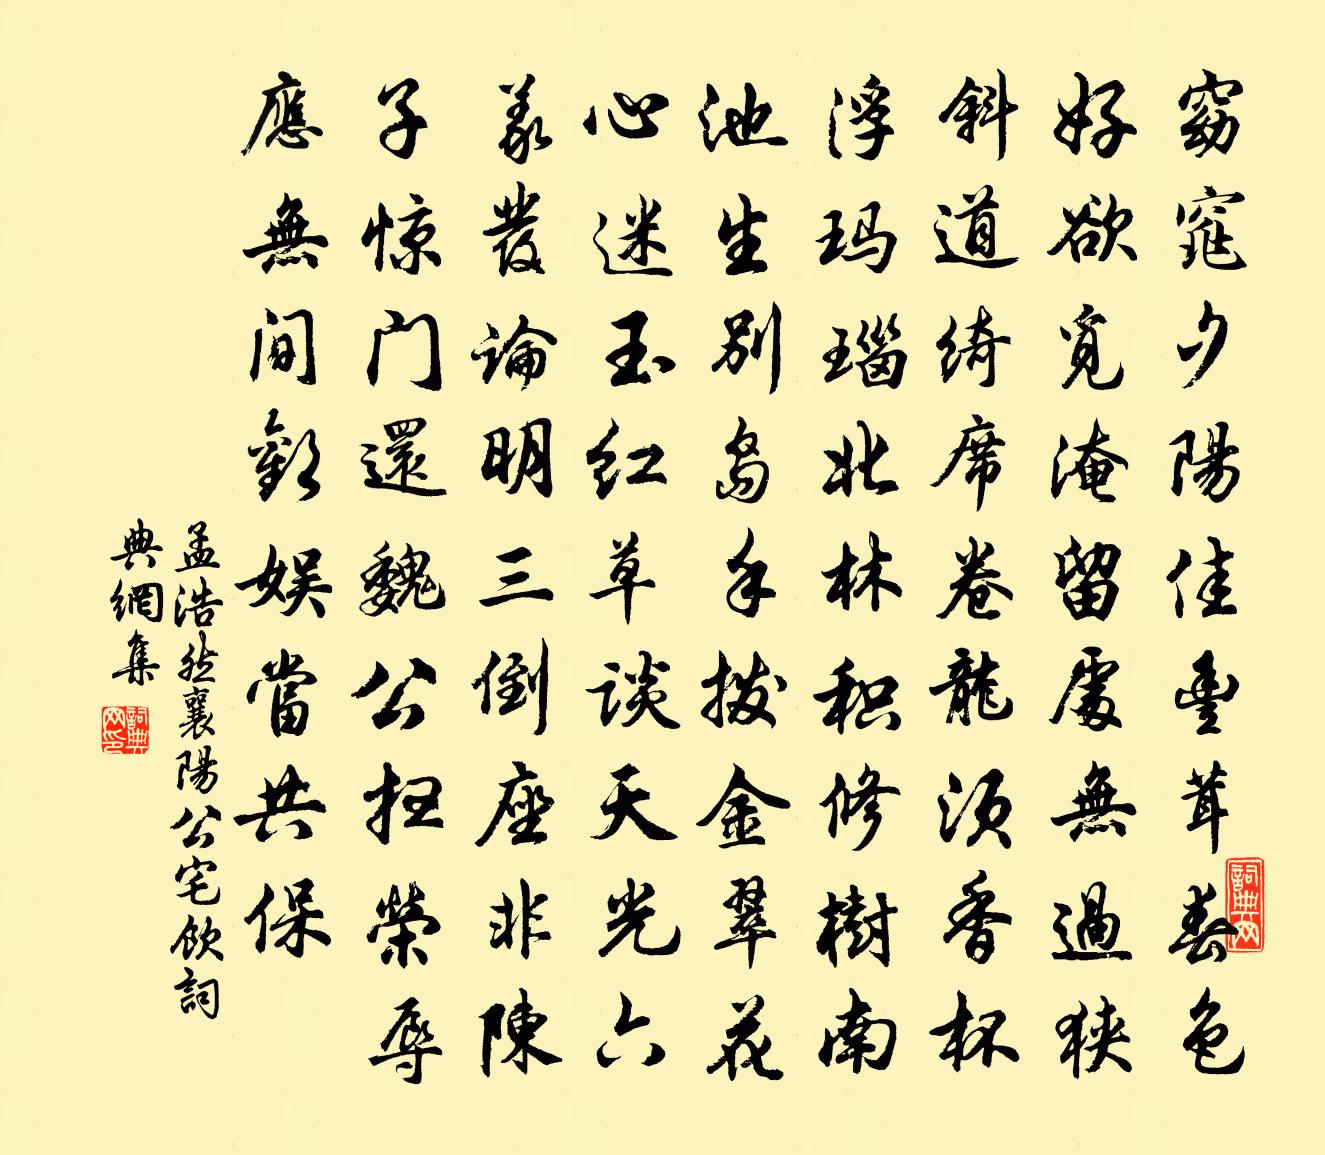 窈窕夕陽佳豐茸春色
好欲覓淹留處無過狹
斜道綺席卷龍须香杯
浮玛瑙北林积修樹南
池生别岛手撥金翠花
心迷玉红草談天光六
義發論明三倒座非陳
子惊门還魏公扫榮辱
應無间歡娛當共保
孟浩然襄陽公宅飲詞
典網集
詞典网印
詞典网